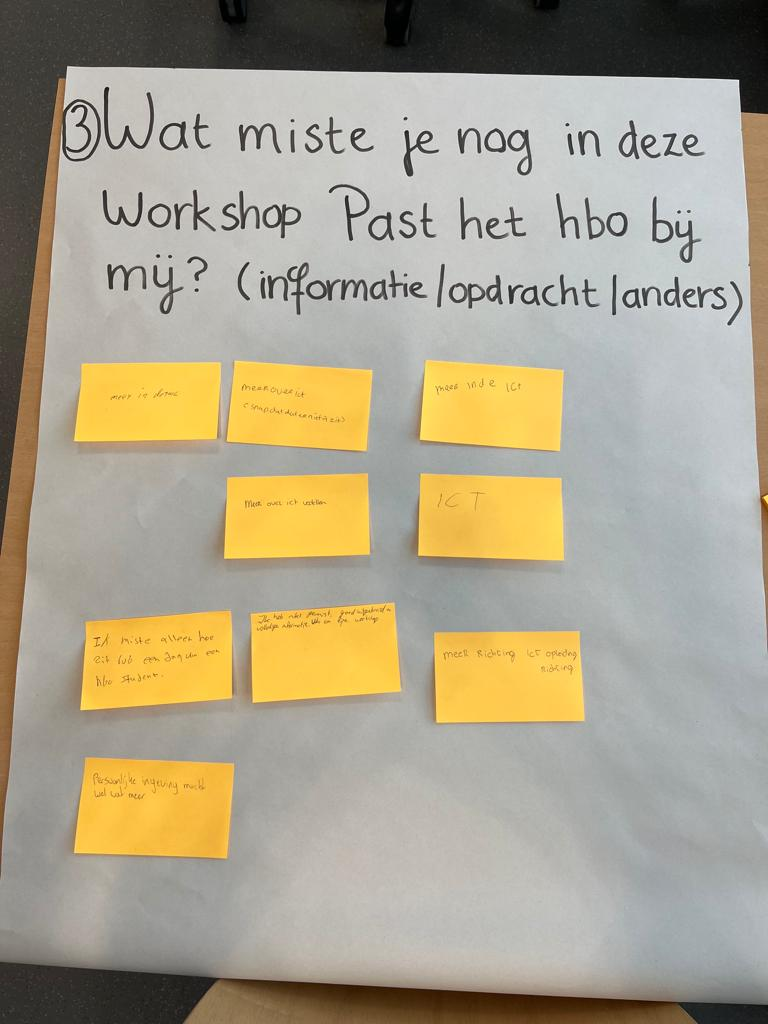 ③ Wat miste je nog in deze
Workshop Past het hbo bij
mij? (informatie/opdracht/anders)
meer in
meer over ict
(snap dat dat er niet in zit)
meer in de ICT
Meer over ict vertellen
ICT
Ik miste alleen hoe
ziet een dag van een
hbo student.
Ik heb niks gemist, goed
volledige informatie.
meer richting ICT opleiding
richting
Persoonlijke ingeving mocht
wel wat meer